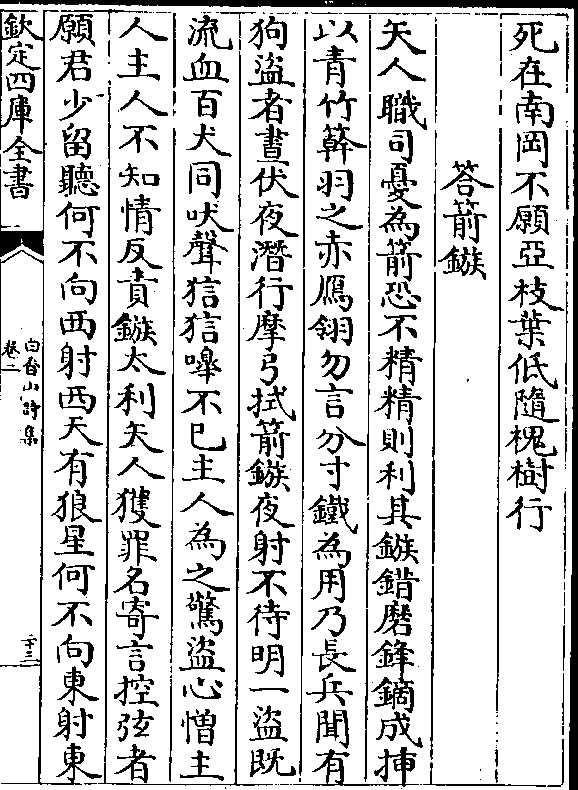 死在南岡不願亞枝葉低隨槐樹行
答箭鏃
矢人職司憂為箭恐不精精則利其鏃錯磨鋒鏑成揷
以青竹簳羽之赤鴈翎勿言分寸鐵為用乃長兵聞有
狗盜者晝伏夜潛行摩弓拭箭鏃夜射不待明一盜既
流血百犬同吠聲狺狺嘷不已主人為之驚盜心憎主
人主人不知情反責鏃太利矢人獲罪名寄言控弦者
願君少留聽何不向西射西天有狼星何不向東射東
欽定四庫全書
白香山詩集
卷二
二十三